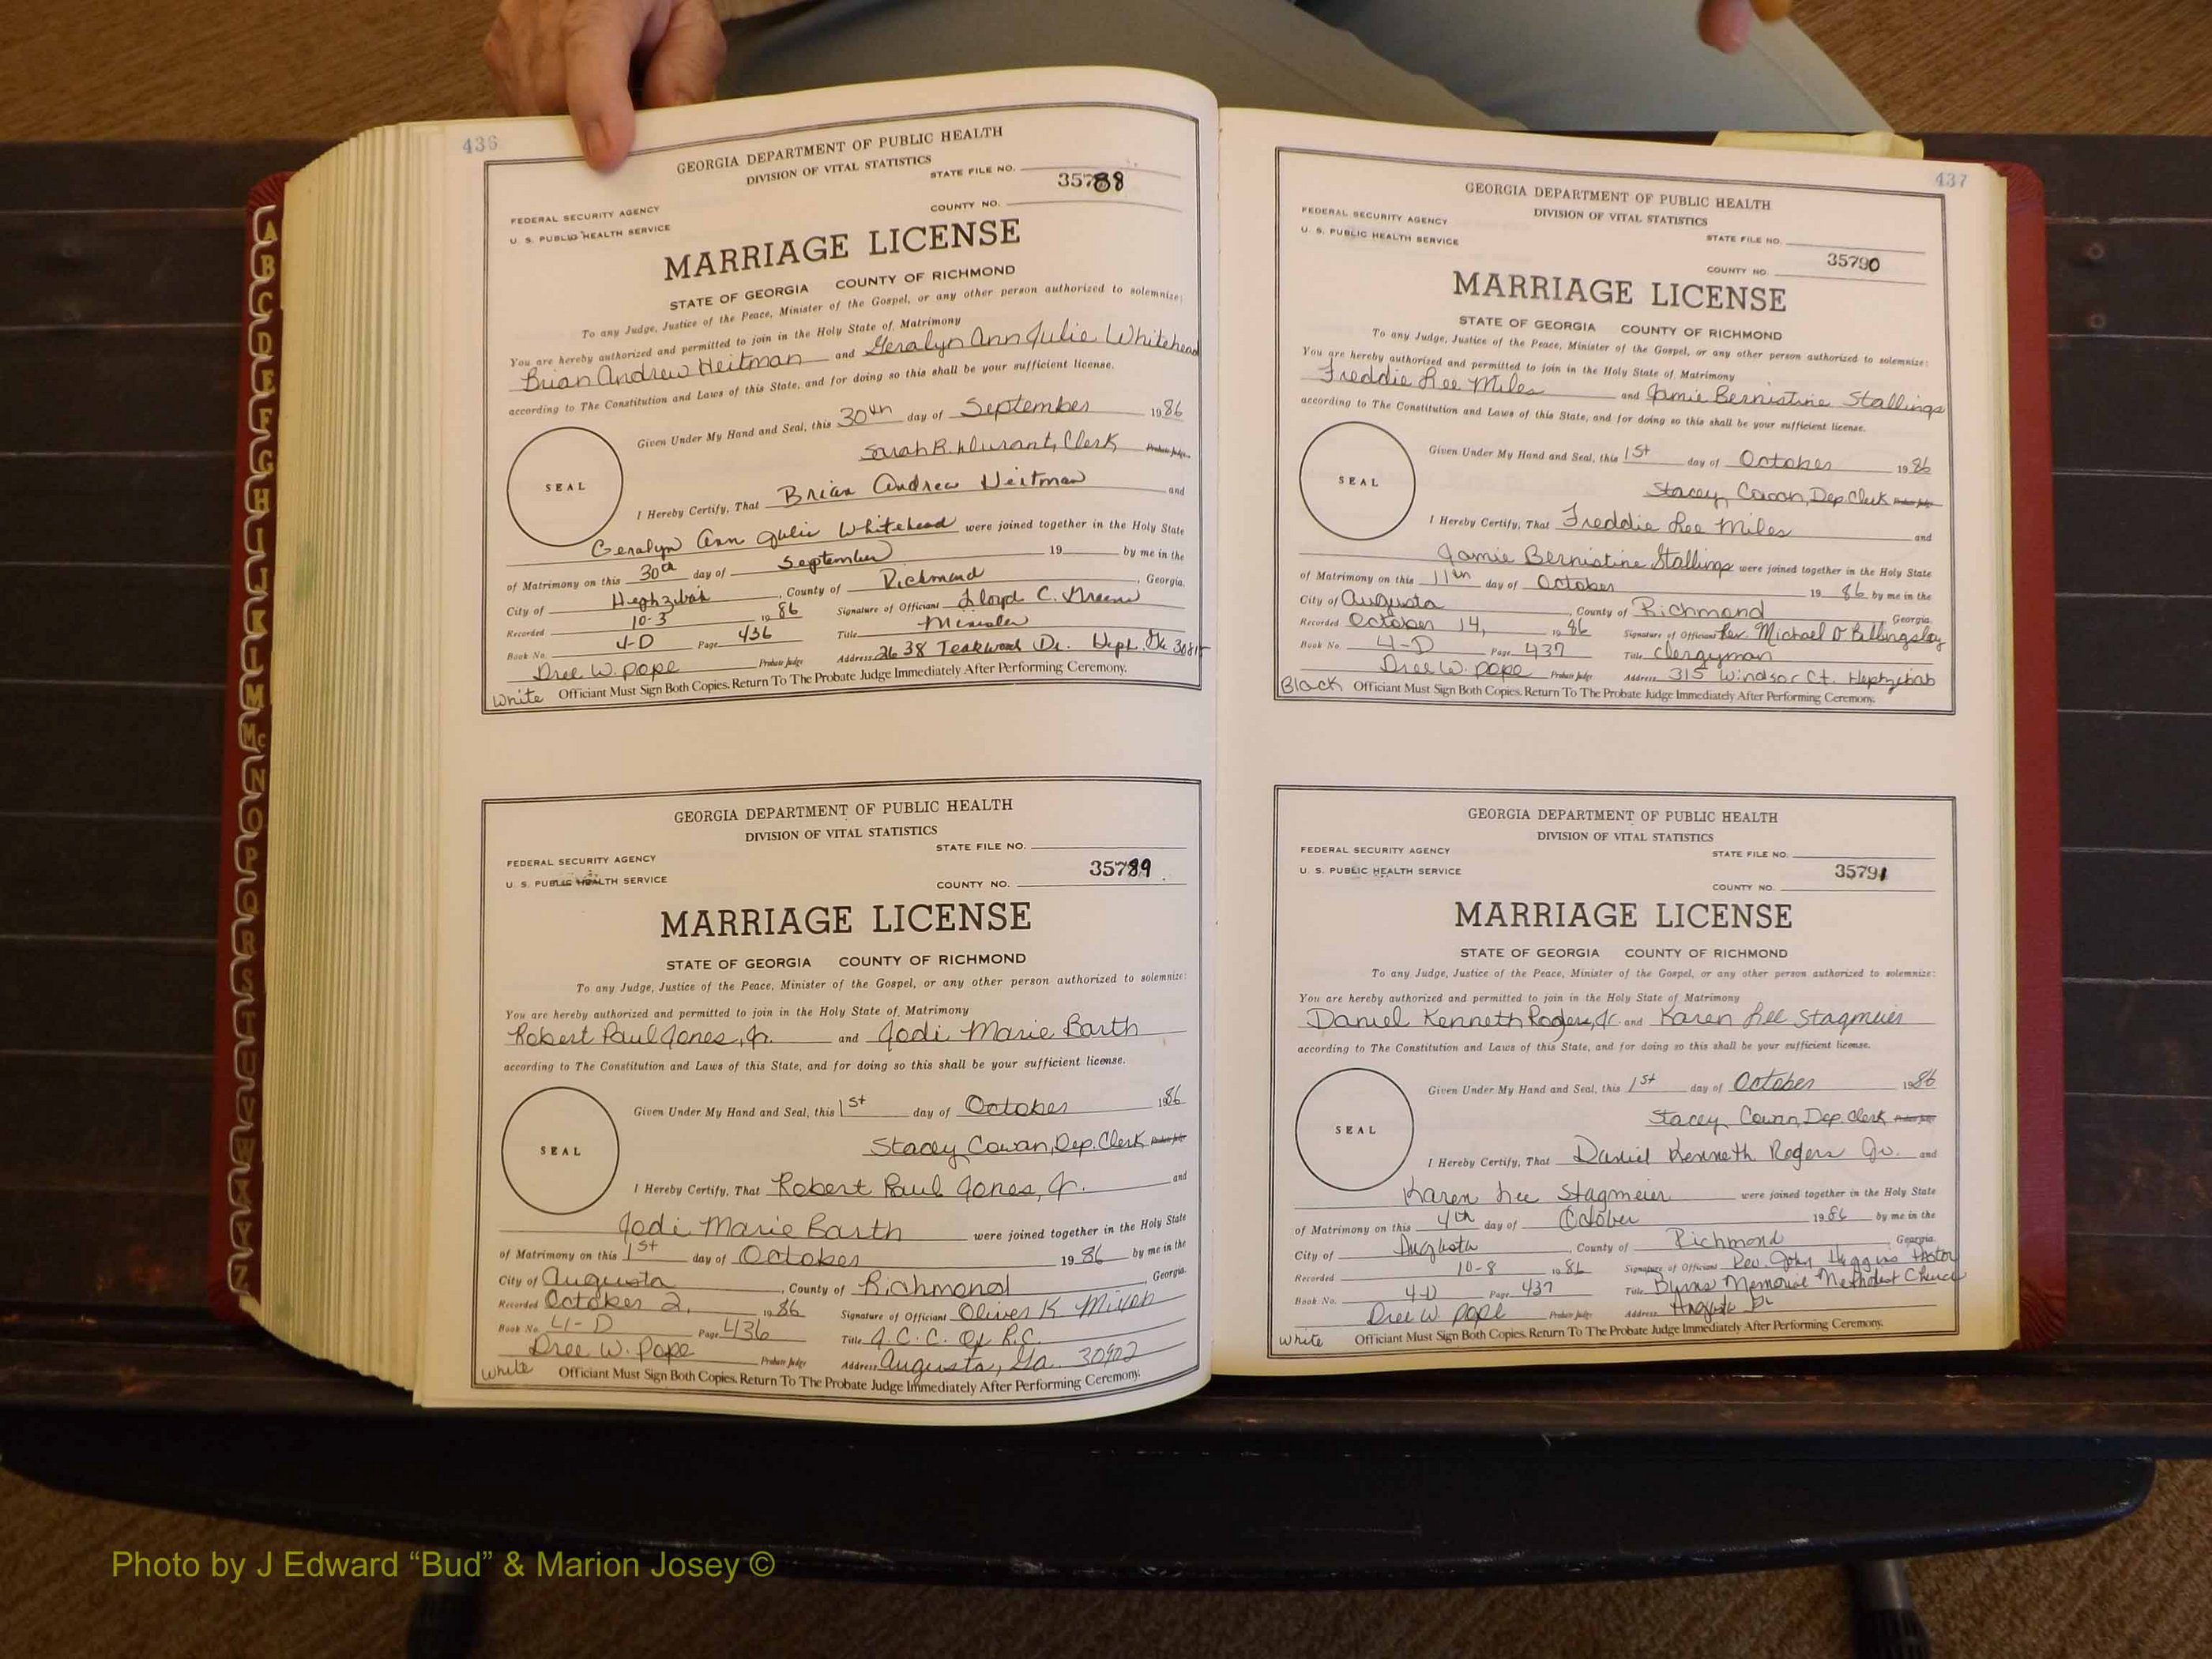 436
GEORGIA DEPARTMENT OF PUBLIC HEALTH
DIVISION OF VITAL STATISTICS
STATE FILE NO.
35788
FEDERAL SECURITY AGENCY
COUNTY NO.
U. S. PUBLIC HEALTH SERVICE
MARRIAGE LICENSE
STATE OF GEORGIA COUNTY OF RICHMOND
To any Judge, Justice of the Peace, Minister of the Gospel, or any other person authorized to solemnize:
You are hereby authorized and permitted to join in the Holy State of Matrimony
Brian Andrew Heitman and Geralyn Ann Julie Whitehead
according to The Constitution and Laws of this State, and for doing so this shall be your sufficient license.
Given Under My Hand and Seal, this 30th day of September 1986
Sarah B. Durant, Clerk Probate Judge
SEAL
I Hereby Certify, That Brian Andrew Heitman and
Geralyn Ann Julie Whitehead were joined together in the Holy State
of Matrimony on this 30th day of September 19 by me in the
City of Hephzibah, County of Richmond, Georgia.
Recorded 10-3 1986 Signature of Official Lloyd C. Greene
Book No. 4-D Page 436 Title Minister
Dree W. Pope Probate Judge Address 2638 Teakwood Dr. Heph. Ga 30815
White Officiant Must Sign Both Copies. Return To The Probate Judge Immediately After Performing Ceremony.
GEORGIA DEPARTMENT OF PUBLIC HEALTH
DIVISION OF VITAL STATISTICS
STATE FILE NO.
FEDERAL SECURITY AGENCY
35789
U. S. PUBLIC HEALTH SERVICE
COUNTY NO.
MARRIAGE LICENSE
STATE OF GEORGIA COUNTY OF RICHMOND
To any Judge, Justice of the Peace, Minister of the Gospel, or any other person authorized to solemnize:
You are hereby authorized and permitted to join in the Holy State of Matrimony
Robert Paul Jones, Jr. and Jodi Marie Barth
according to The Constitution and Laws of this State, and for doing so this shall be your sufficient license.
Given Under My Hand and Seal, this 1st day of October 1986
Stacey Cowan, Dep. Clerk Probate Judge
SEAL
I Hereby Certify, That Robert Paul Jones, Jr. and
Jodi Marie Barth were joined together in the Holy State
of Matrimony on this 1st day of October 1986 by me in the
City of Augusta, County of Richmond, Georgia.
Recorded October 2, 1986 Signature of Official Oliver K Mixon
Book No. 4-D Page 436 Title J.C.C. Of R.C.
Dree W. Pope Probate Judge Address Augusta, Ga. 30902
White Officiant Must Sign Both Copies. Return To The Probate Judge Immediately After Performing Ceremony.
437
GEORGIA DEPARTMENT OF PUBLIC HEALTH
DIVISION OF VITAL STATISTICS
FEDERAL SECURITY AGENCY
STATE FILE NO.
U. S. PUBLIC HEALTH SERVICE
35790
COUNTY NO.
MARRIAGE LICENSE
STATE OF GEORGIA COUNTY OF RICHMOND
To any Judge, Justice of the Peace, Minister of the Gospel, or any other person authorized to solemnize:
You are hereby authorized and permitted to join in the Holy State of Matrimony
Freddie Lee Miles and Jamie Bernistine Stallings
according to The Constitution and Laws of this State, and for doing so this shall be your sufficient license.
Given Under My Hand and Seal, this 1st day of October 1986
Stacey Cowan, Dep. Clerk Probate Judge
SEAL
I Hereby Certify, That Freddie Lee Miles and
Jamie Bernistine Stallings were joined together in the Holy State
of Matrimony on this 11th day of October 1986 by me in the
City of Augusta, County of Richmond Georgia.
Recorded October 14, 1986 Signature of Official Rev. Michael D Billingslay
Book No. 4-D Page 437 Title Clergyman
Dree W. Pope Probate Judge Address 315 Windsor Ct. Hephzibah
Black Officiant Must Sign Both Copies. Return To The Probate Judge Immediately After Performing Ceremony.
GEORGIA DEPARTMENT OF PUBLIC HEALTH
DIVISION OF VITAL STATISTICS
FEDERAL SECURITY AGENCY
STATE FILE NO.
U. S. PUBLIC HEALTH SERVICE
35791
COUNTY NO.
MARRIAGE LICENSE
STATE OF GEORGIA COUNTY OF RICHMOND
To any Judge, Justice of the Peace, Minister of the Gospel, or any other person authorized to solemnize:
You are hereby authorized and permitted to join in the Holy State of Matrimony
Daniel Kenneth Rogers, Jr. and Karen Lee Stagmeier
according to The Constitution and Laws of this State, and for doing so this shall be your sufficient license.
Given Under My Hand and Seal, this 1st day of October 1986
Stacey Cowan, Dep. Clerk Probate Judge
SEAL
I Hereby Certify, That Daniel Kenneth Rogers Jr. and
Karen Lee Stagmeier were joined together in the Holy State
of Matrimony on this 4th day of October 1986 by me in the
City of Augusta, County of Richmond, Georgia.
Recorded 10-8 1986 Signature of Official Rev. John Higgins Pastor
Book No. 4-D Page 437 Title Burns Memorial Methodist Church
Dree W Pope Probate Judge Address Augusta
White Officiant Must Sign Both Copies. Return To The Probate Judge Immediately After Performing Ceremony.
A
B
C
D
E
F
G
H
I
J
K
L
M
Mc
N
O
P
Q
R
S
T
U
V
W
X
Y
Z
Photo by J Edward “Bud” & Marion Josey ©